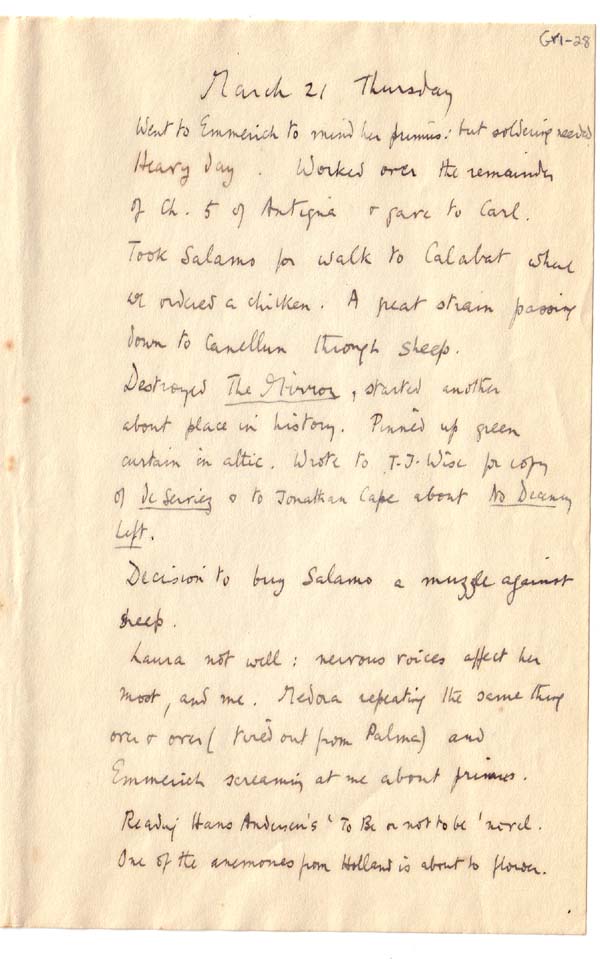 GY1-28
March 21 Thursday
Went to Emmerich to mend her primus: but soldering needed
Heavy day. Worked over the remainder
of Ch. 5 of Antigua & gave to Carl.
Took Salamo for walk to Calabat where
we ordered a chicken. A great strain passing
down to Canellun through sheep.
Destroyed The Mirror, started another
about place in history. Pinned up green
curtain in attic. Wrote to T.J. Wise for copy
of de Serviez & to Jonathan Cape about No Decency
Left.
Decision to buy Salamo a muzzle against
sheep.
Laura not well: nervous voices affect her
most, and me. Medora repeating the same thing
over & over (tired out from Palma) and
Emmerich screaming at me about primus.
Reading Hans Andersen's 'To Be or not to be' novel.
One of the anemones from Holland is about to flower.